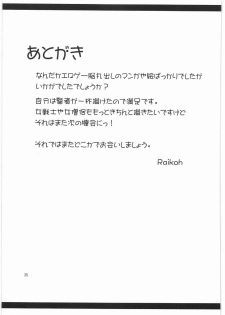 あとがき
なんだかエロゲー脳丸出しのマンガや絵ばっかりでしたが
いかがでしたでしょうか？
自分は賢者が一杯描けたので満足です。
女戦士や女僧侶ももっときちんと描きたいですけど
それはまた次の機会にっ！
それではまたどこかでお会いしましょう。
Raikoh